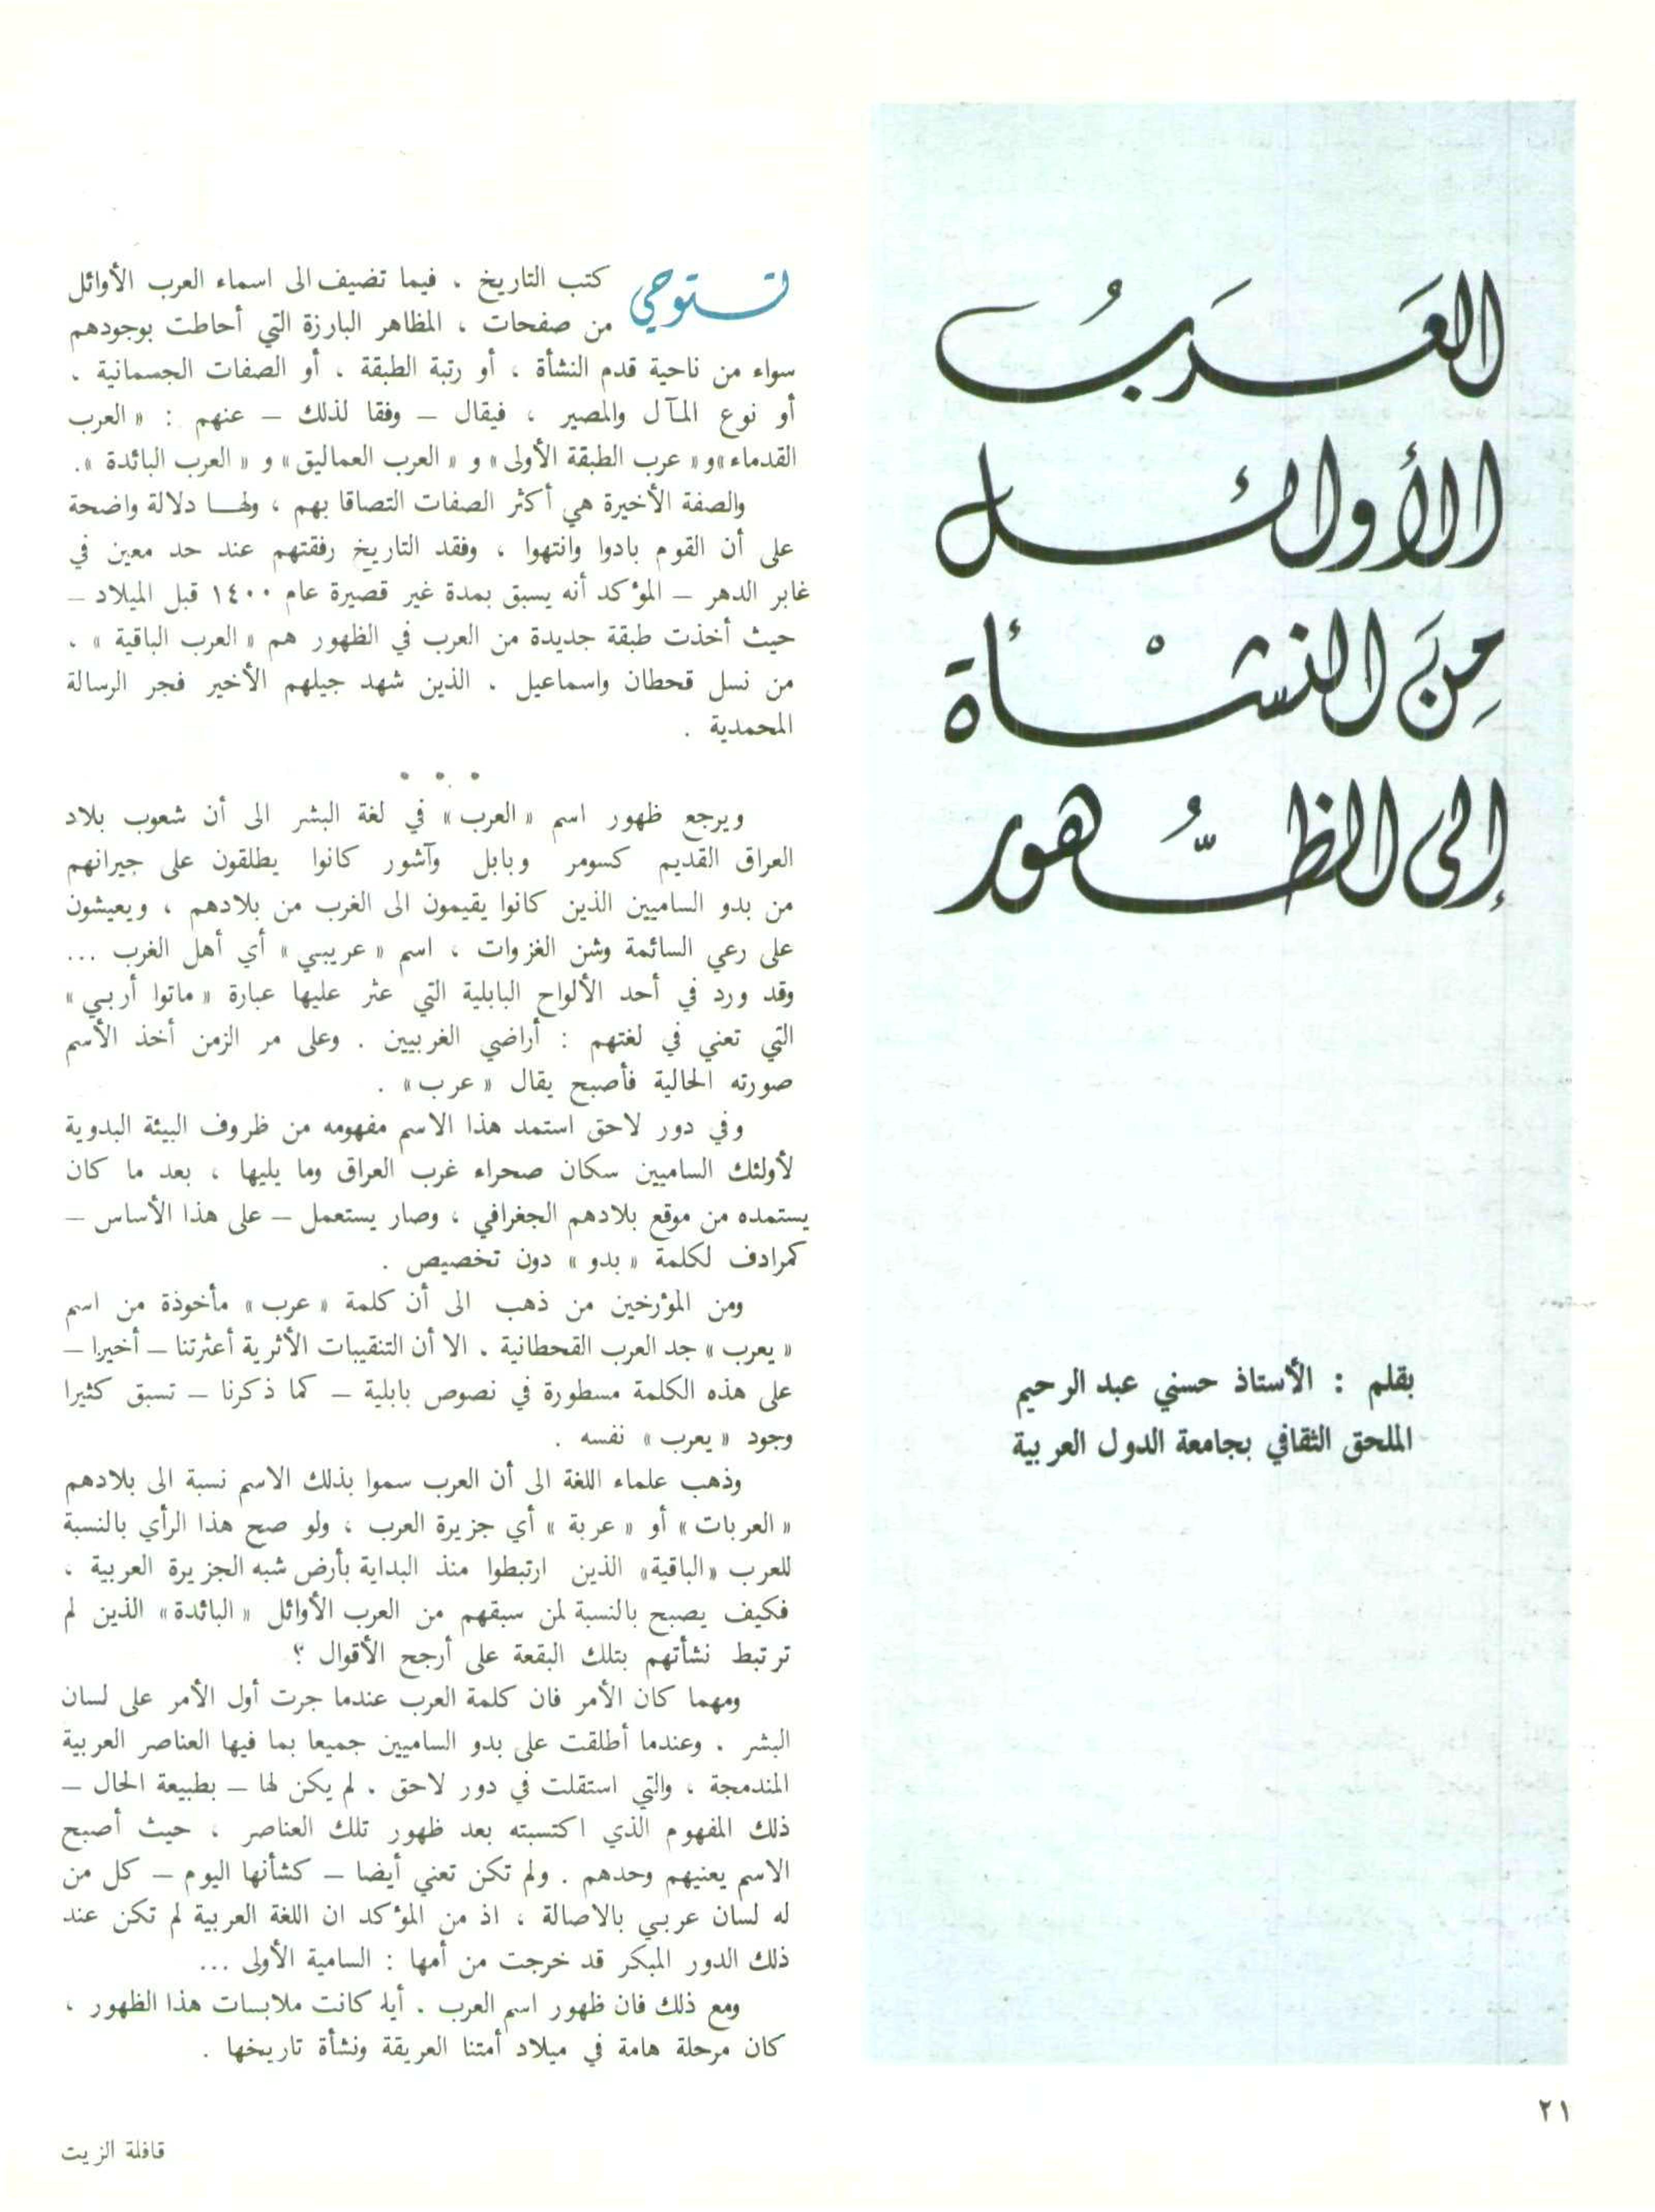 العَرَبُ
الأوائل
مِنَ النشْأة
إلى الظُّهور
بقلم : الأستاذ حسني عبد الرحيم
الملحق الثقافي بجامعة الدول العربية
تستوحي كتب التاريخ ، فيما تضيف الى اسماء العرب الأوائل
من صفحات ، المظاهر البارزة التي أحاطت بوجودهم
سواء من ناحية قدم النشأة ، أو رتبة الطبقة ، أو الصفات الجسمانية ،
أو نوع المآل والمصير ، فيقال – وفقا لذلك – عنهم : « العرب
القدماء » و « عرب الطبقة الأولى » و « العرب العماليق » و « العرب البائدة » .
والصفة الأخيرة هي أكثر الصفات التصاقا بهم ، ولها دلالة واضحة
على أن القوم بادوا وانتهوا ، وفقد التاريخ رفقتهم عند حد معين في
غابر الدهر – المؤكد أنه يسبق بمدة غير قصيرة عام ١٤٠٠ قبل الميلاد –
حيث أخذت طبقة جديدة من العرب في الظهور هم « العرب الباقية » ،
من نسل قحطان واسماعيل ، الذين شهد جيلهم الأخير فجر الرسالة
المحمدية .
• • •
ويرجع ظهور اسم « العرب » في لغة البشر الى أن شعوب بلاد
العراق القديم كسومر وبابل وآشور كانوا يطلقون على جيرانهم
من بدو الساميين الذين كانوا يقيمون الى الغرب من بلادهم ، ويعيشون
على رعي السائمة وشن الغزوات ، اسم « عريبي » أي أهل الغرب ...
وقد ورد في أحد الألواح البابلية التي عثر عليها عبارة « ماتوا أربي »
التي تعني في لغتهم : أراضي الغربيين . وعلى مر الزمن أخذ الأسم
صورته الحالية فأصبح يقال « عرب » .
وفي دور لاحق استمد هذا الاسم مفهومه من ظروف البيئة البدوية
لأولئك الساميين سكان صحراء غرب العراق وما يليها ، بعد ما كان
يستمده من موقع بلادهم الجغرافي ، وصار يستعمل – على هذا الأساس –
كمرادف لكلمة « بدو » دون تخصيص .
ومن المؤرخين من ذهب الى أن كلمة « عرب » مأخوذة من اسم
« يعرب » جد العرب القحطانية . الا أن التنقيبات الأثرية أعثرتنا – أخيرا –
على هذه الكلمة مسطورة في نصوص بابلية – كما ذكرنا – تسبق كثيرا
وجود « يعرب » نفسه .
وذهب علماء اللغة الى أن العرب سموا بذلك الاسم نسبة الى بلادهم
« العربات » أو « عربة » أي جزيرة العرب ، ولو صح هذا الرأي بالنسبة
للعرب « الباقية » الذين ارتبطوا منذ البداية بأرض شبه الجزيرة العربية ،
فكيف يصبح بالنسبة لمن سبقهم من العرب الأوائل « البائدة » الذين لم
ترتبط نشأتهم بتلك البقعة على أرجح الأقوال ؟
ومهما كان الأمر فان كلمة العرب عندما جرت أول الأمر على لسان
البشر . وعندما أطلقت على بدو الساميين جميعا بما فيها العناصر العربية
المندمجة ، والتي استقلت في دور لاحق . لم يكن لها – بطبيعة الحال –
ذلك المفهوم الذي اكتسبته بعد ظهور تلك العناصر ، حيث أصبح
الاسم يعنيهم وحدهم . ولم تكن تعني أيضا – كشأنها اليوم – كل من
له لسان عربي بالاصالة ، اذ من المؤكد ان اللغة العربية لم تكن عند
ذلك الدور المبكر قد خرجت من أمها : السامية الأولى ...
ومع ذلك فان ظهور اسم العرب . أيا كانت ملابسات هذا الظهور ،
كان مرحلة هامة في ميلاد أمتنا العريقة ونشأة تاريخها .
٢١
قافلة الزيت